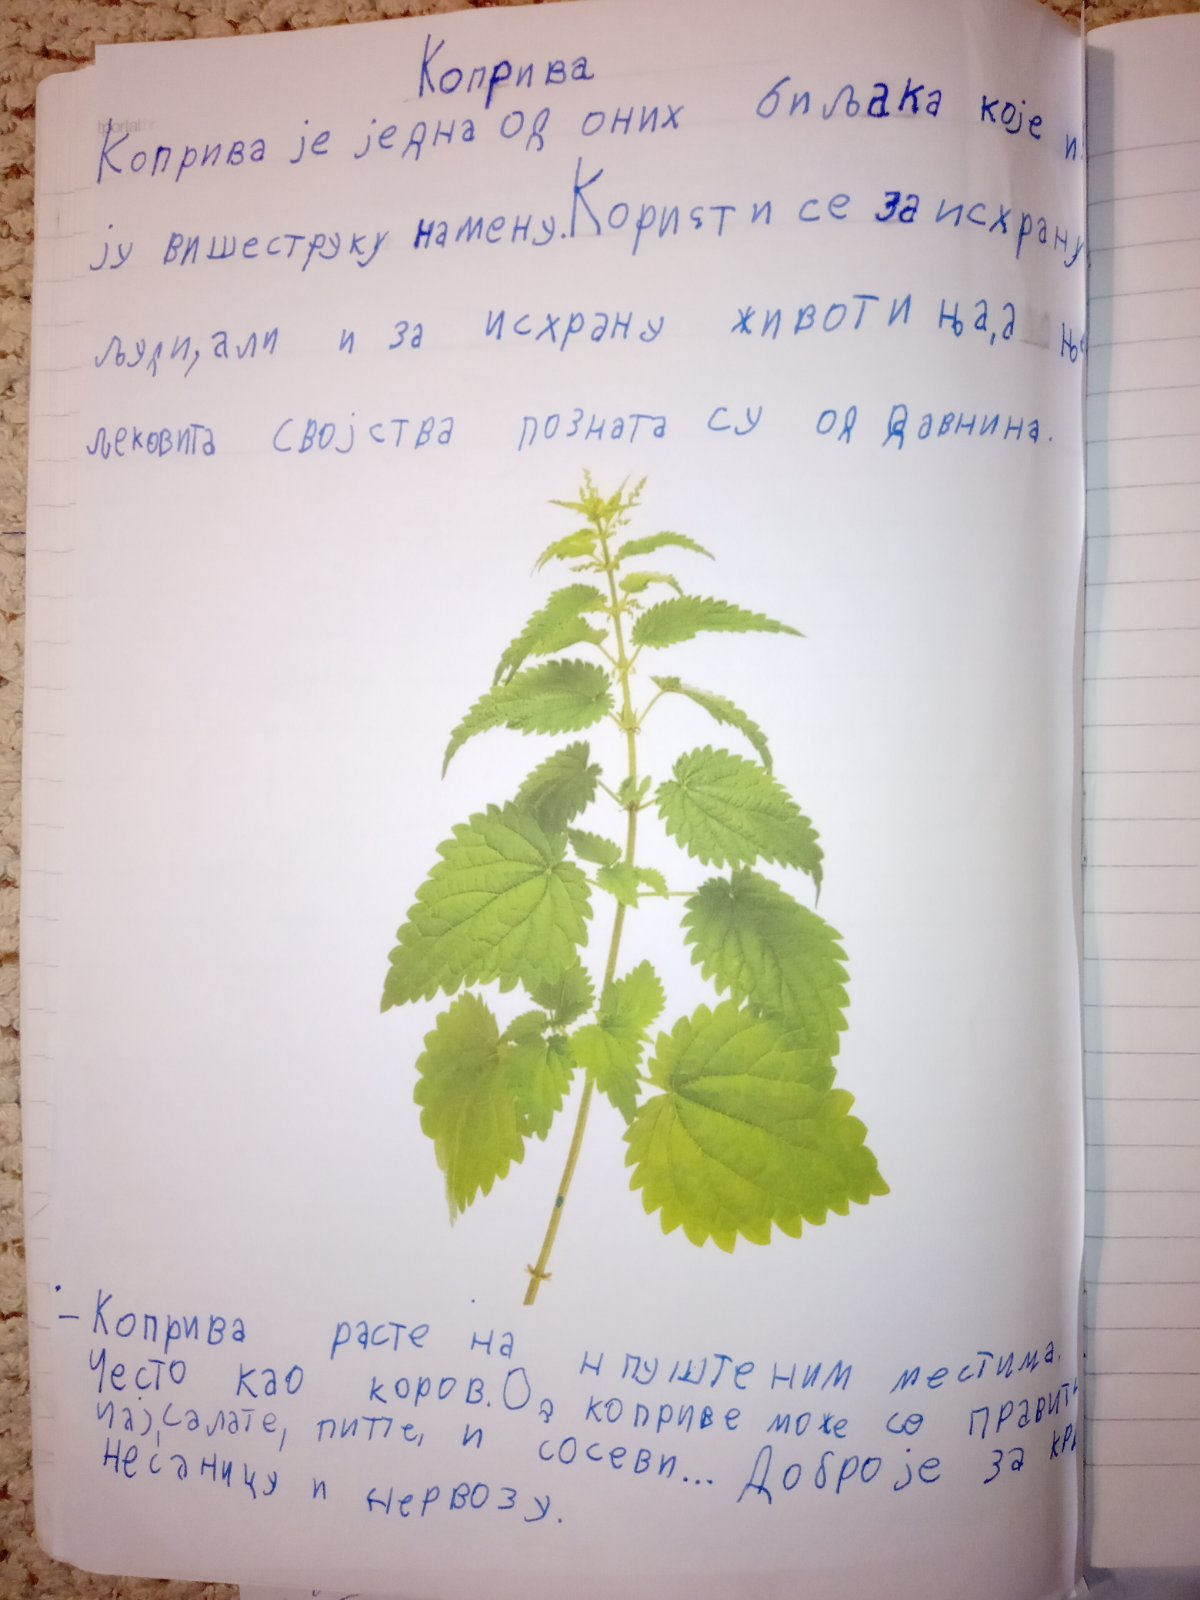 Коприва
Коприва је једна од оних биљака које
ју вишеструку намену. Користи се за исхрану
људи, али и за исхрану животиња, а
љековита својства позната су од давнина.
- Коприва расте на нпуштеним местима.
Често као коров. Од коприве може се правити
чај, салате, пите, и сосеви... Добро је за
несаницу и нервозу.